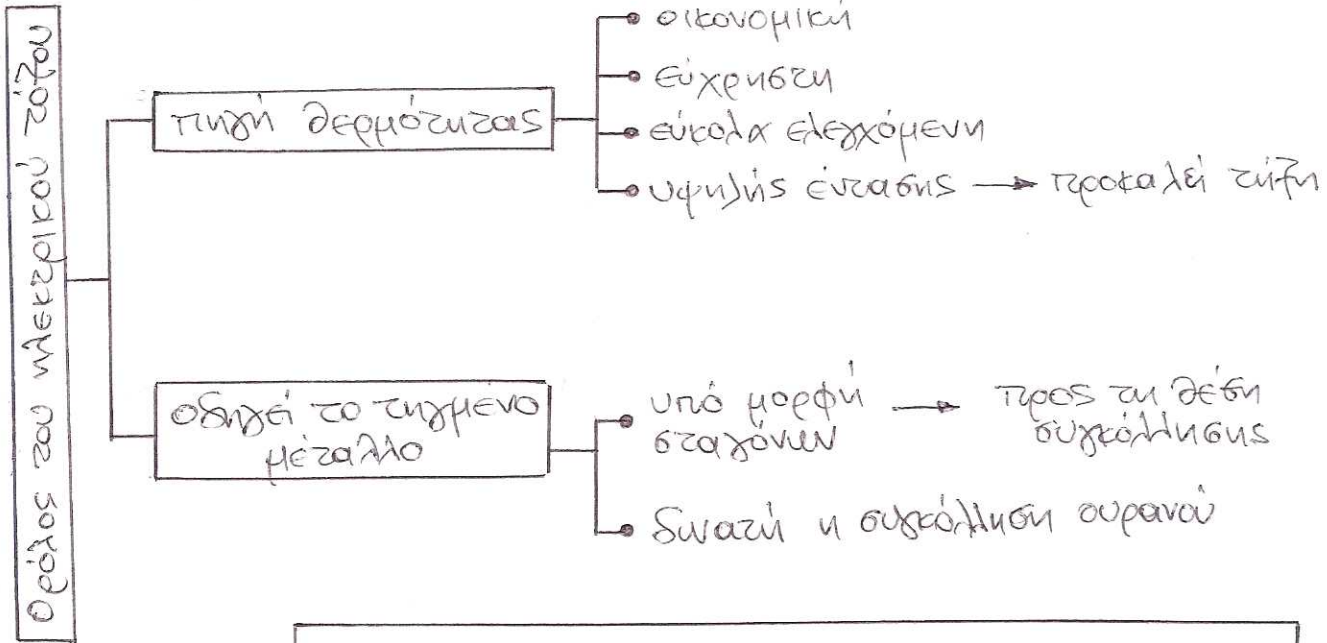 Ο ρόλος του ηλεκτρικού τόξου
πηγή θερμότητας
οικονομική
εύχρηστη
εύκολα ελεγχόμενη
υψηλής έντασης → προκαλεί τήξη
οδηγεί το τηγμένο
μέταλλο
υπό μορφή → προς τη θέση
σταγόνων συγκόλλησης
δυνατή η συγκόλληση ουρανού